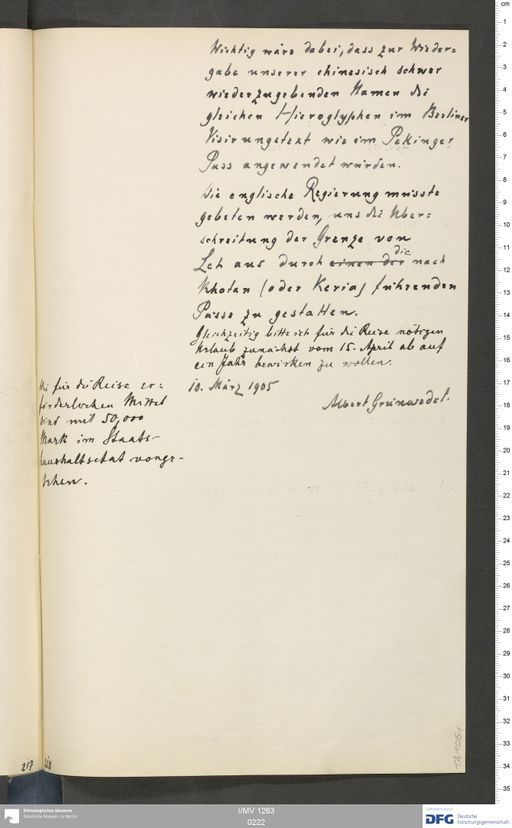 Wichtig wäre dabei, dass zur Wieder=
gabe unserer chinesisch schwer
wiederzugebenden Namen die
gleichen Hieroglyphen im Berliner
Visirungstext wie im Pekinger
Pass angewendet würden.
Die englische Regierung müsste
gebeten werden, uns die Über=
schreitung der Grenze von
Leh aus durch einen der die nach
Khotan (oder Keria) führenden
Pässe zu gestatten.
Gleichzeitig bitte ich für die Reise nötigen
Urlaub zunächst vom 15. April ab auf
ein Jahr bewirken zu wollen.
10. März 1905
Albert Grünwedel.
Die für die Reise er=
forderlichen Mittel
sind mit 50,000
Mark im Staats-
haushaltsetat vorge-
sehen.
217
TA 1061
Ethnologisches Museum
Staatliche Museen zu Berlin
I/MV 1263
0222
DFG Deutsche
Forschungsgemeinschaft
cm
1
2
3
4
5
6
7
8
9
10
11
12
13
14
15
16
17
18
19
20
21
22
23
24
25
26
27
28
29
30
31
32
33
34
35